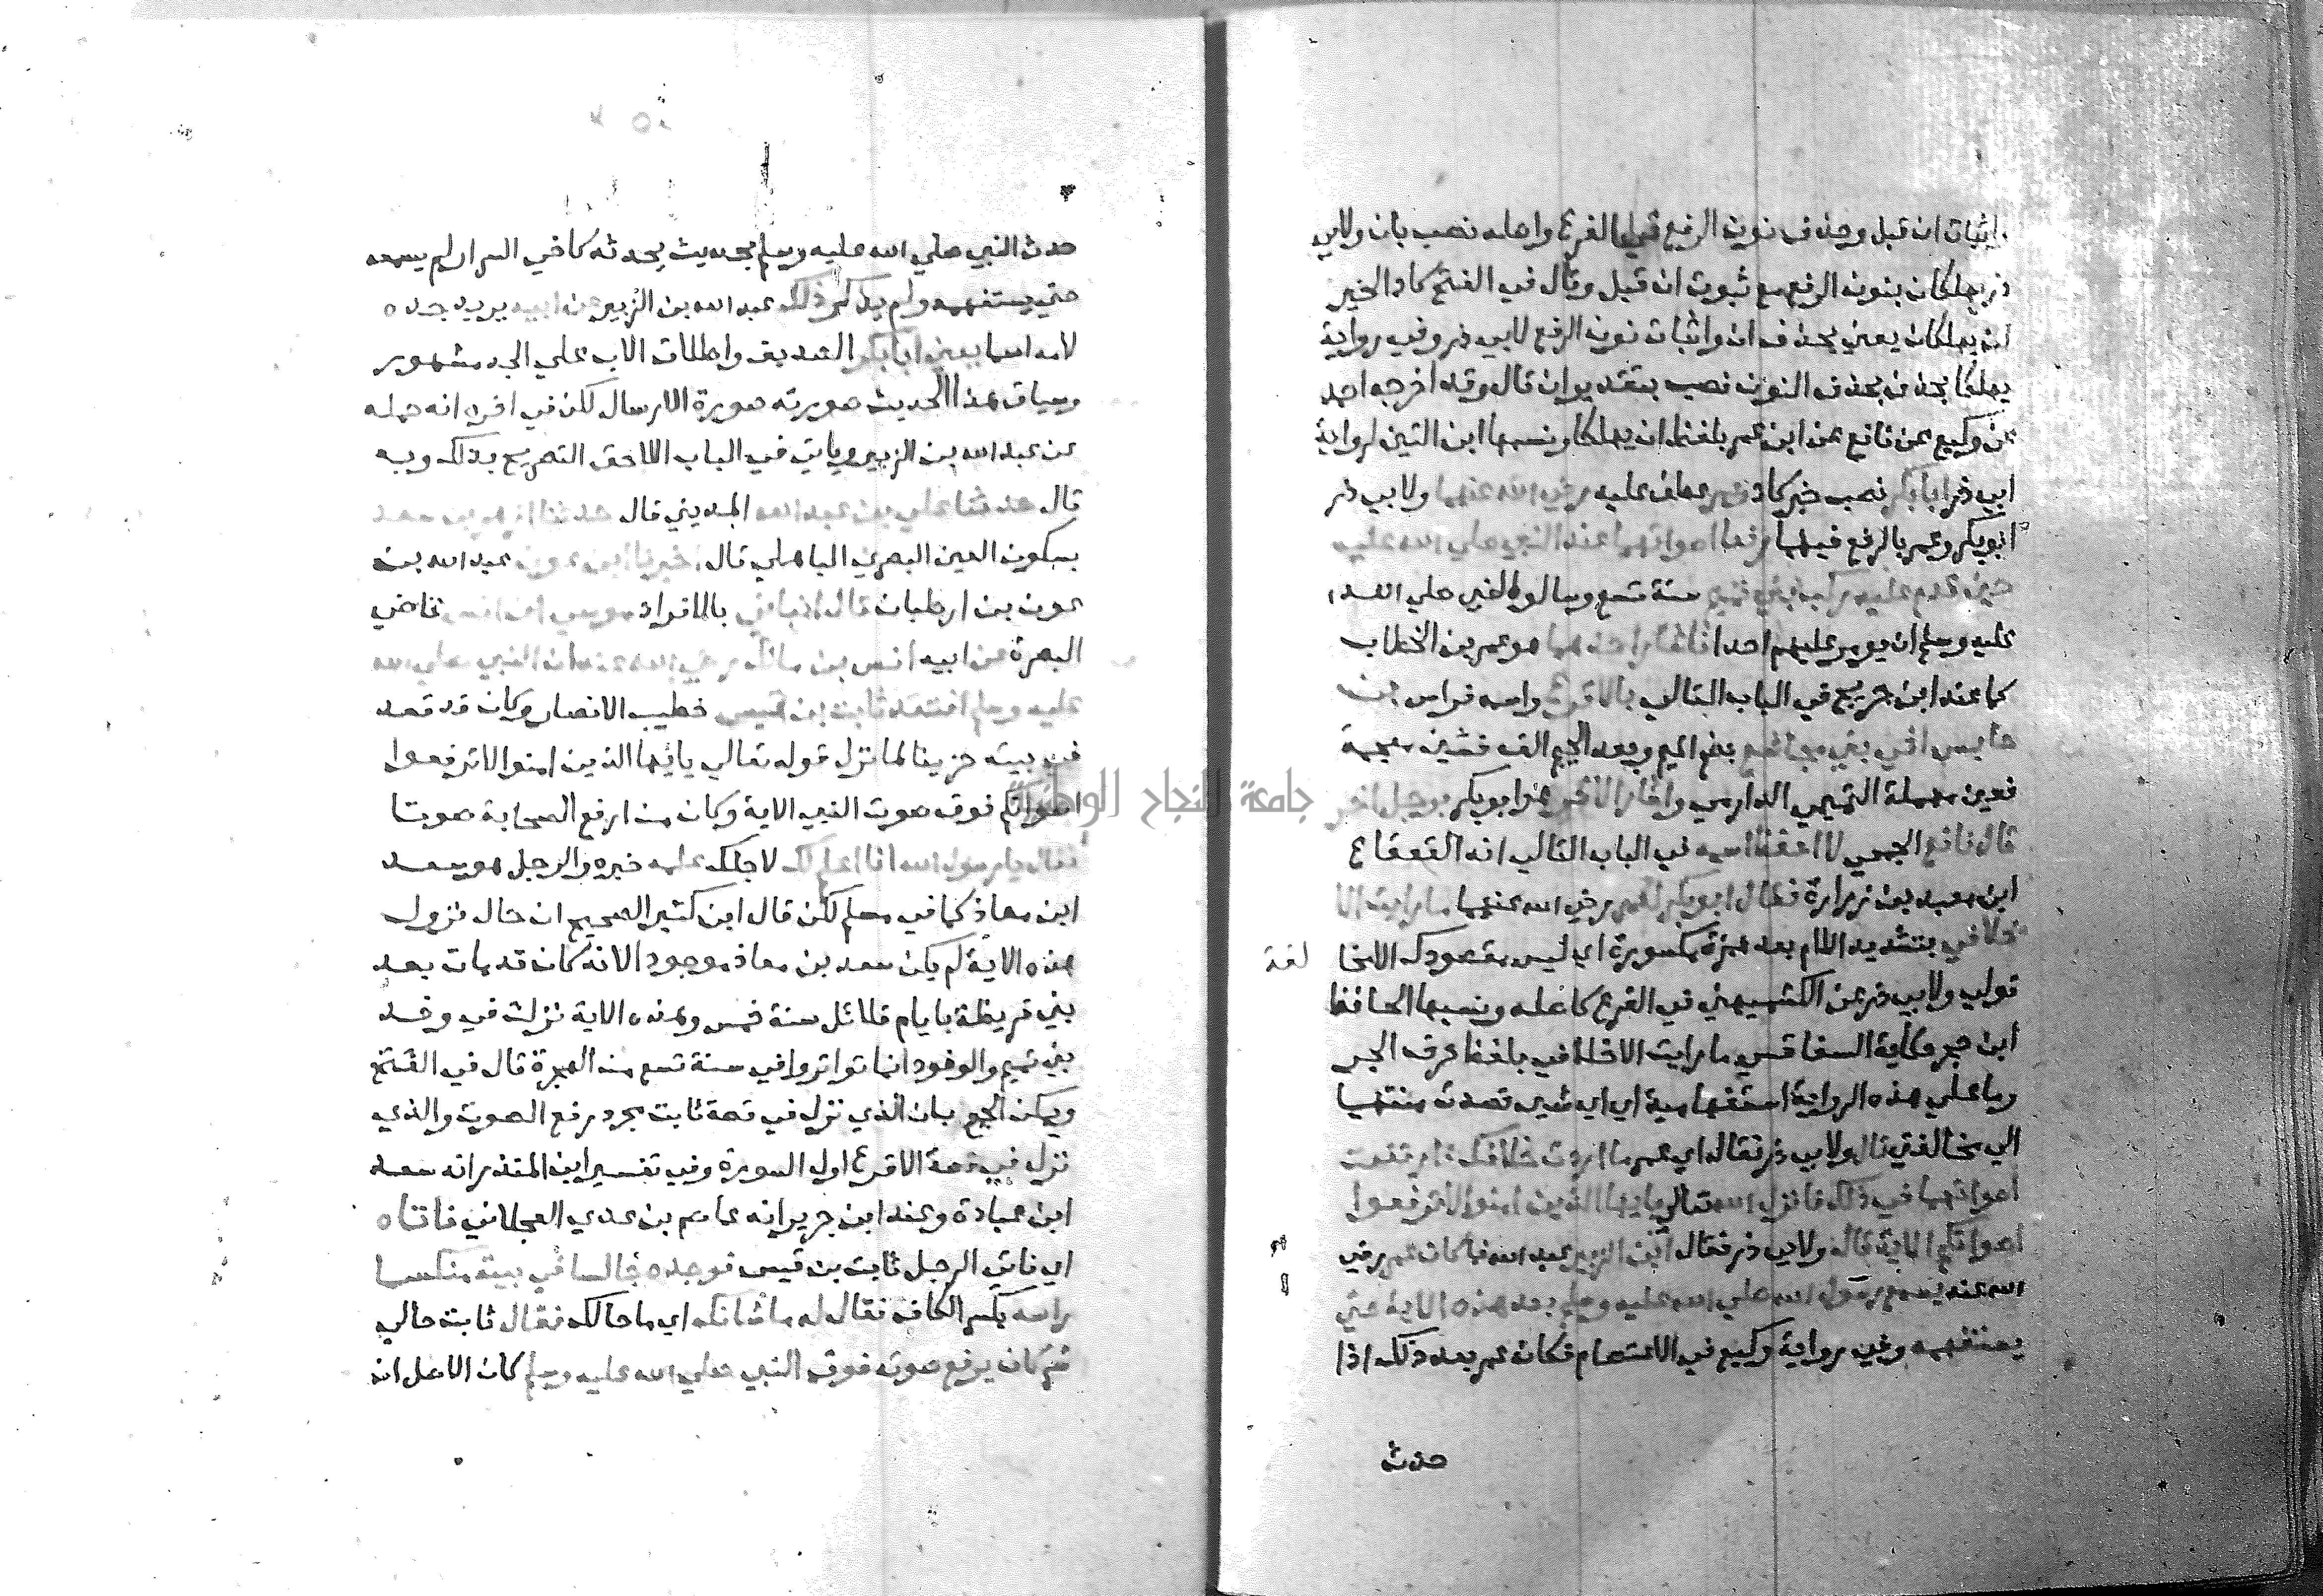 باثبات ان قبل وحذف نون الرفع في الفرع واصله نصب بان ولابي
ذر يهلكان بنون الرفع مع ثبوت ان قبل وقال في الفتح كاد الخير
ان يهلكان يعني بحذف ان واثبات نون الرفع لابي ذر وفي رواية
يهلكا بحذف بحذف النون نصب بتقدير ان قال وقد اخرجه احمد
عن وكيع عن نافع عن ابن عمر بلفظ ان يهلكا ونسبها ابن التين لرواية
ابي ذر ابابكر نصب خبر كاد وعمر عطف عليه رضي الله عنهما ولابي ذر
ابو بكر وعمر بالرفع فيهما رفعا اصواتهما عند النبي صلي الله عليه
حين قدم عليه ركب بني تميم سنة تسع وسالوا النبي صلي الله
عليه وسلم ان يومر عليهم احدا فاشار احدهما هو عمر بن الخطاب
كما عند ابن جريج في الباب التالي بالاقرع واسمه فراس بن
حابس اخي بني مجاشع بضم الميم وبعد الجيم الف فشين معجمة
فعين مهملة التميمي الدارمي واشار الاخر هو ابو بكر برجل اخر
قال نافع الجمحي لا احفظ اسمه في الباب التالي انه القعقاع
ابن معبد بن زرارة فقال ابو بكر لعمر رضي الله عنهما ما رايت الا
خلافي بتشديد اللام بعد همزة مكسورة اي ليس مقصودك الامخا لفة
قولي ولابي ذر عن الكشميهني في الفرع كاصله ونسبها الحافظ
ابن حجر حكاية السفاقسي ما رايت الا خلافي بلفظ حرف الجر
وما علي هذه الرواية استفهامية اي اي شي قصدت منتهيا
الي مخالفتي قال ولابي ذر فقال اي عمر ما اردت خلافك فارتفعت
اصواتهما في ذلك فانزل الله تعالي ياايها الذين امنوا لا ترفعوا
اصواتكم الاية قال ولابي ذر فقال ابن الزبير عبد الله فما كان عمر رضي
الله عنه يسمع رسول الله صلي الله عليه وسلم بعد هذه الاية حتي
يستفهمه وفي رواية وكيع في الاعتصام فكان عمر بعد ذلك اذا
حدث
حدث النبي صلي الله عليه وسلم بحديث يحدثه كاخي السرار لم يسمعه
حتي يستفهمه ولم يذكر ذلك عبد الله بن الزبير عن ابيه يريد جده
لامه اسما يعني ابابكر الصديق واطلاق الاب علي الجد مشهور
وسياق هذا الحديث صورته صورة الارسال لكن في اخره انه حمله
عن عبد الله بن الزبير وياتي في الباب اللاحق التصريح بذلك وبه
قال حدثنا علي بن عبد الله المديني قال حدثنا ازهر بن سعد
بسكون العين البصري الباهلي قال اخبرنا ابن عون عبد الله بن
عون بن ارطبان قال انباني بالافراد موسي ابن انس قاضي
البصرة عن ابيه انس بن مالك رضي الله عنه ان النبي صلي الله
عليه وسلم افتقد ثابت بن قيس خطيب الانصار وكان قد قعد
في بيته حزينا لما نزل قوله تعالي ياايها الذين امنوا لا ترفعوا
اصواتكم فوق صوت النبي الاية وكان من ارفع الصحابة صوتا
فقال رجل يا رسول الله انا اعلم لك لاجلك علمه خبره والرجل هو سعد
ابن معاذ كما في مسلم لكن قال ابن كثير الصحيح ان حال نزول
هذه الاية لم يكن سعد بن معاذ موجودا لانه كان قد مات بعد
بني قريظة بايام قلائل سنة خمس وهذه الاية نزلت في وفد
بني تميم والوفود انما تواتروا في سنة تسع من الهجرة قال في الفتح
ويمكن الجمع بان الذي نزل في قصة ثابت مجرد رفع الصوت والذي
نزل في قصة الاقرع اول السورة وفي تفسير ابن المنذر انه سعد
ابن عبادة وعند ابن جرير انه عاصم بن عدي العجلاني فاتاه
اي فاتي الرجل ثابت بن قيس فوجده جالسا في بيته منكسا
راسه بكسر الكاف فقال له ما شانك اي ما حالك فقال ثابت حالي
شر كان يرفع صوته فوق النبي صلي الله عليه وسلم كان الاصل ان
جامعة النجاح الوطنية